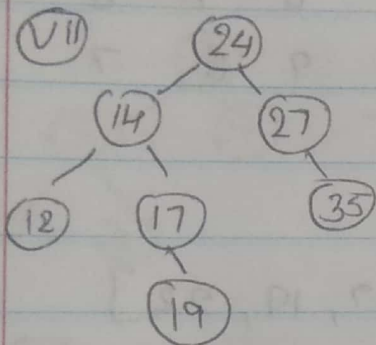 VII
24
14 27
12 17 35
19